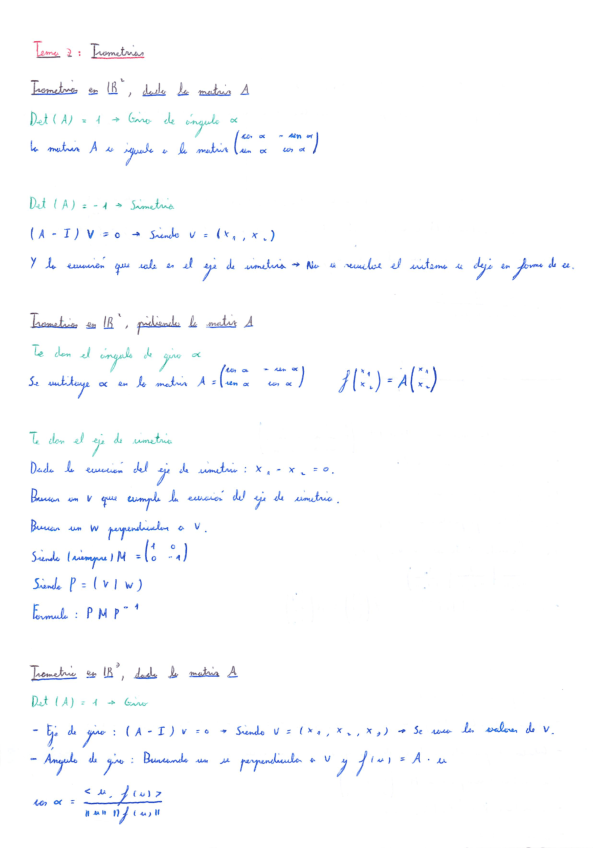 Tema 2 : Isometrías
Isometrías en IR², dada la matriz A
Det (A) = 1 → Giro de ángulo α
La matriz A se iguala a la matriz (cos α - sen α
sen α cos α)
Det (A) = -1 → Simetría
(A - I) V = 0 → Siendo v = (x₁, x₂)
Y la ecuación que sale es el eje de simetría → No se resuelve el sistema se deja en forma de ec.
Isometrías en IR², pidiendo la matriz A
Te dan el ángulo de giro α
Se sustituye α en la matriz A = (cos α - sen α
sen α cos α) f(x₁
x₂) = A(x₁
x₂)
Te dan el eje de simetría
Dada la ecuación del eje de simetría : x₁ - x₂ = 0.
Buscar un v que cumpla la ecuación del eje de simetría.
Buscar un w perpendicular a v.
Siendo (siempre) M = (1 0
0 -1)
Siendo P = (V | W)
Formula : P M P⁻¹
Isometría en IR³, dada la matriz A
Det (A) = 1 → Giro
- Eje de giro : (A - I) v = 0 → Siendo v = (x₁, x₂, x₃) → Se saca los valores de v.
- Ángulo de giro : Buscando un u perpendicular a v y f(u) = A · u
cos α = < u, f(u) >
||u|| ||f(u)||